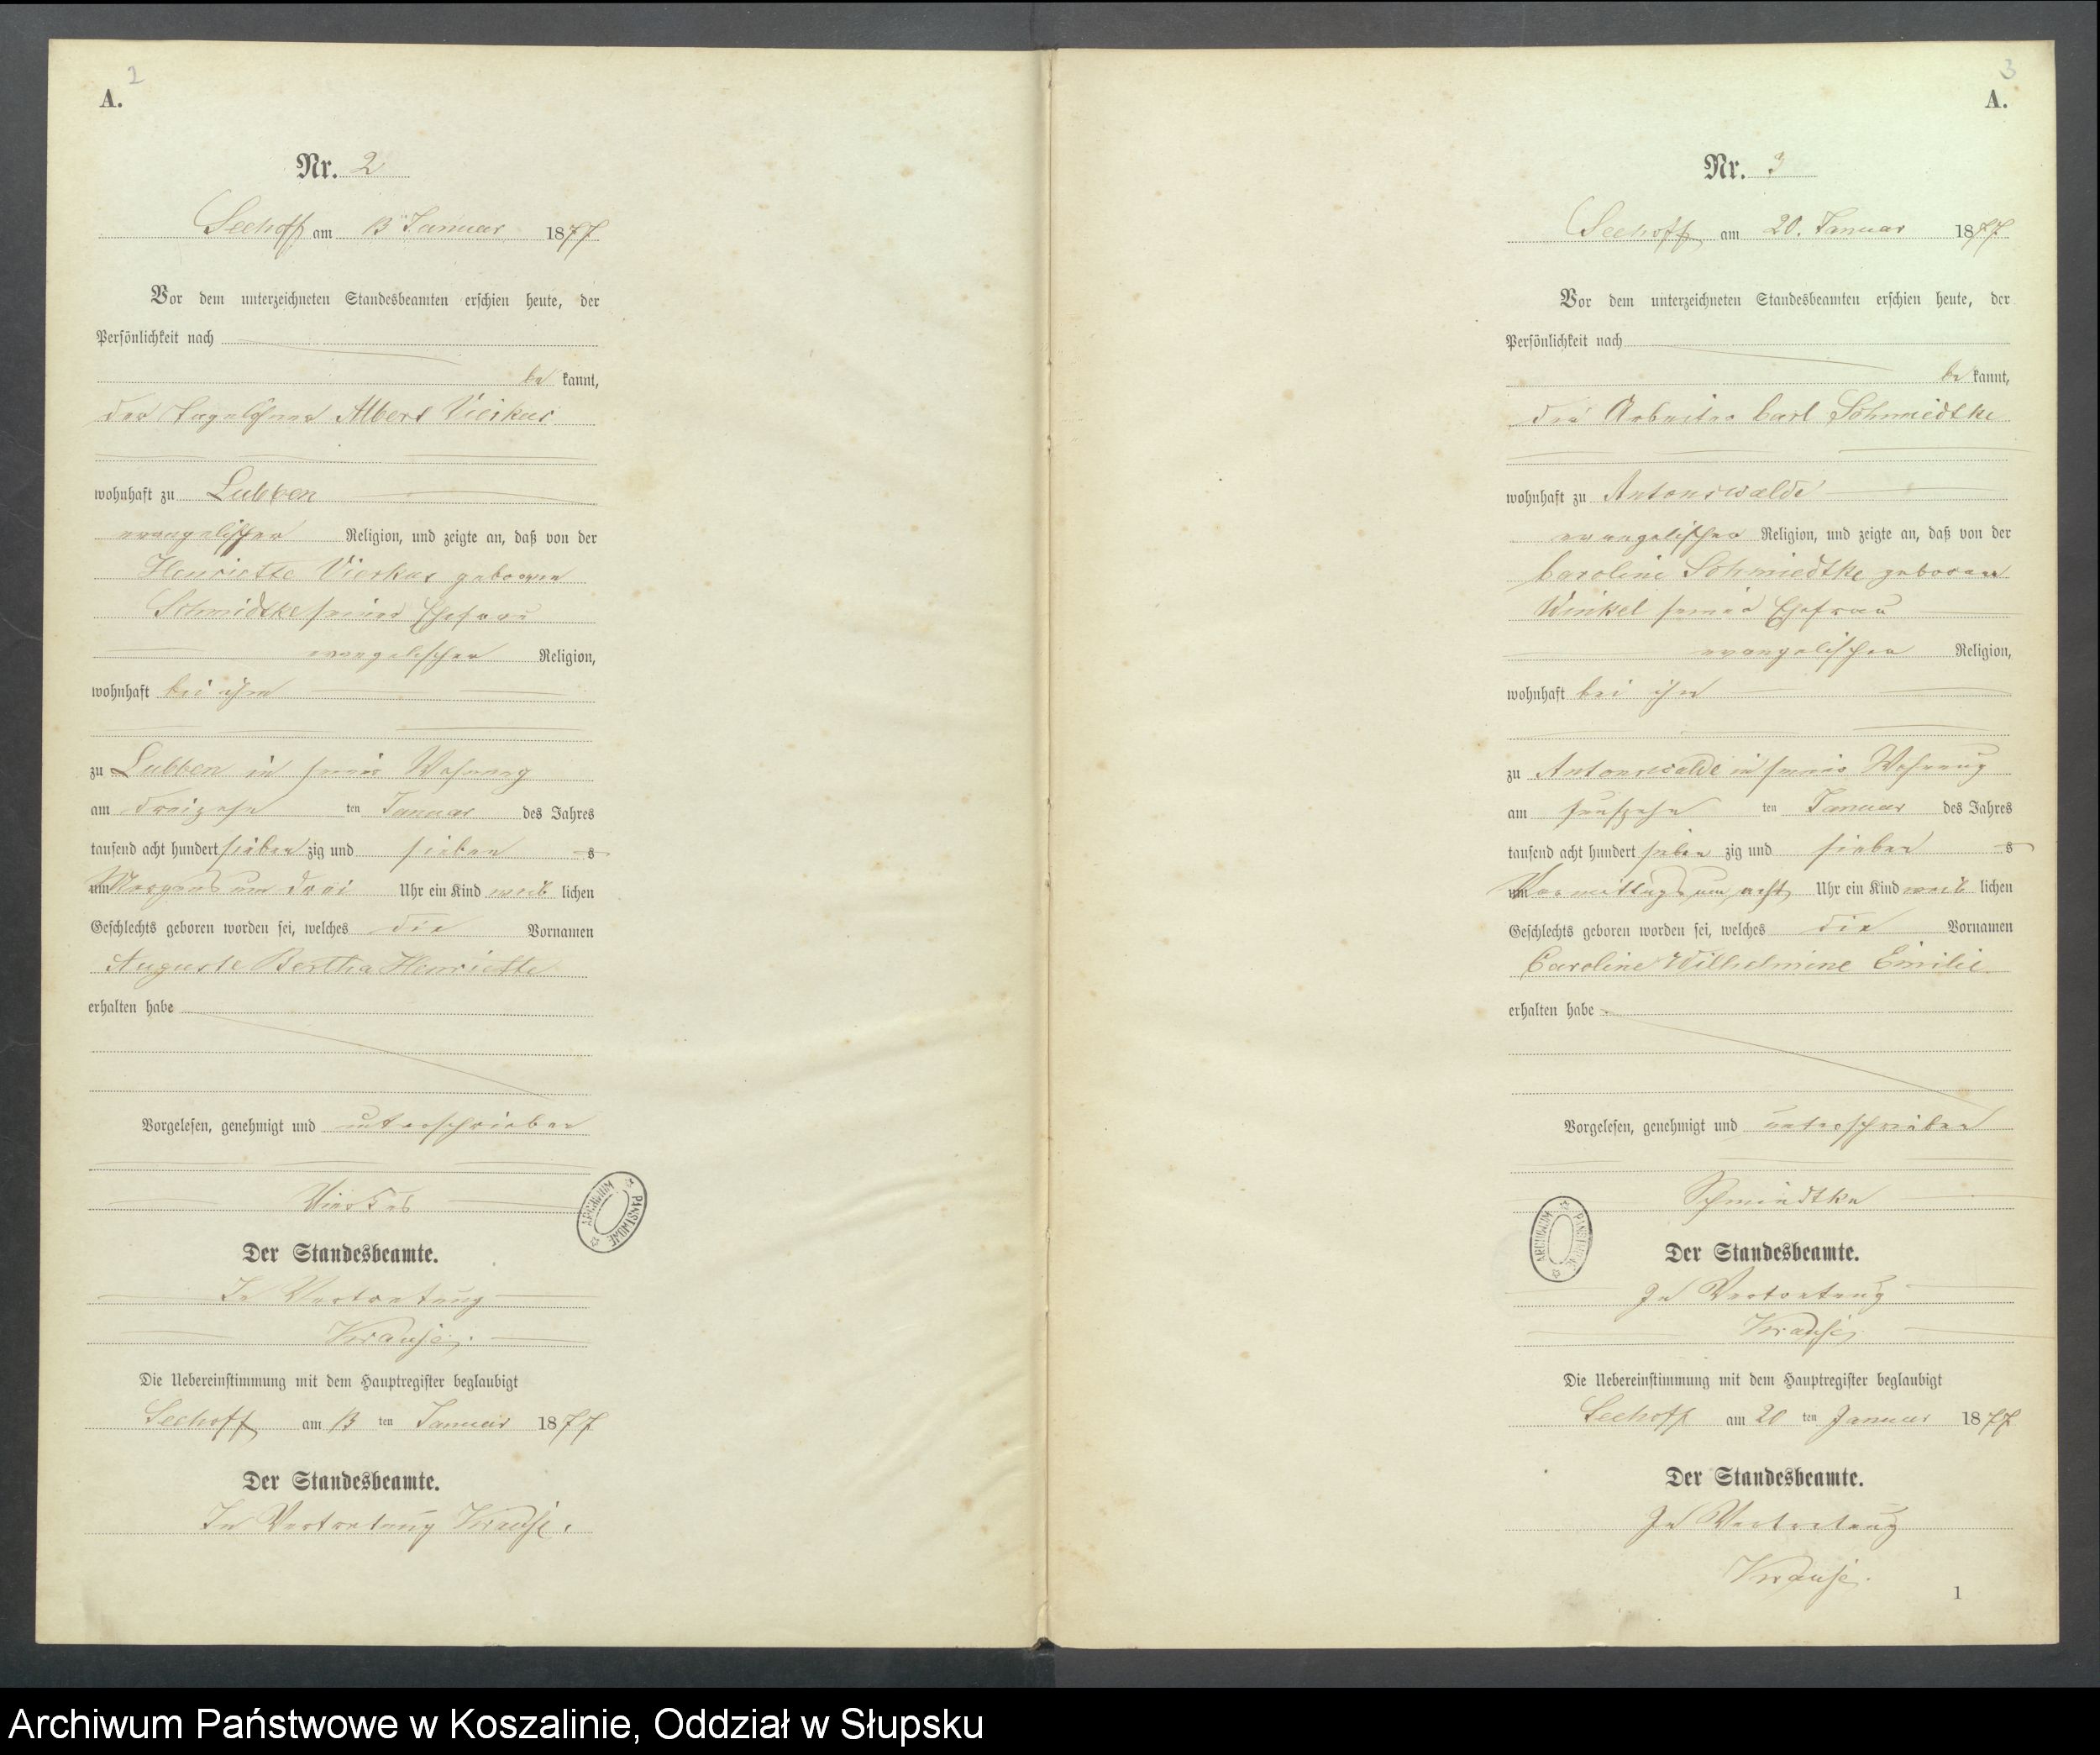 2
A.
Nr. 2
Seehoff am 13 Januar 1877
Vor dem unterzeichneten Standesbeamten erschien heute, der
Persönlichkeit nach
be kannt,
der Tagelöhner Albert Vierkus
wohnhaft zu Lubben
evangelischer Religion, und zeigte an, daß von der
Henriette Vierkus geborenen
Schmidtke seiner Ehefrau
evangelischer Religion,
wohnhaft bei ihm
zu Lubben in seiner Wohnung
am dreizehn ten Januar des Jahres
tausend acht hundert sieben zig und sieben s
um Morgens um drei Uhr ein Kind weib lichen
Geschlechts geboren worden sei, welches die Vornamen
Auguste Bertha Henriette
erhalten habe
Vorgelesen, genehmigt und unterschrieben
Vierkus
ARCHIWUM PAŃSTWOWE
Der Standesbeamte.
In Vertretung
Krause.
Die Uebereinstimmung mit dem Hauptregister beglaubigt
Seehoff am 13 ten Januar 1877
Der Standesbeamte.
In Vertretung Krause.
3
A.
Nr. 3
Seehoff am 20. Januar 1877
Vor dem unterzeichneten Standesbeamten erschien heute, der
Persönlichkeit nach
be kannt,
der Arbeiter Carl Schmiedtke
wohnhaft zu Antonswalde
evangelischer Religion, und zeigte an, daß von der
Caroline Schmiedtke geboren
Winkel seiner Ehefrau
evangelischer Religion,
wohnhaft bei ihm
zu Antonswalde in seiner Wohnung
am funfzehn ten Januar des Jahres
tausend acht hundert sieben zig und sieben s
um Vormittags um acht Uhr ein Kind weib lichen
Geschlechts geboren worden sei, welches die Vornamen
Caroline Wilhelmine Emilie
erhalten habe
Vorgelesen, genehmigt und unterschrieben
Schmiedtke
ARCHIWUM PAŃSTWOWE
Der Standesbeamte.
In Vertretung
Krause
Die Uebereinstimmung mit dem Hauptregister beglaubigt
Seehoff am 20 ten Januar 1877
Der Standesbeamte.
In Vertretung
Krause.
1
Archiwum Państwowe w Koszalinie, Oddział w Słupsku